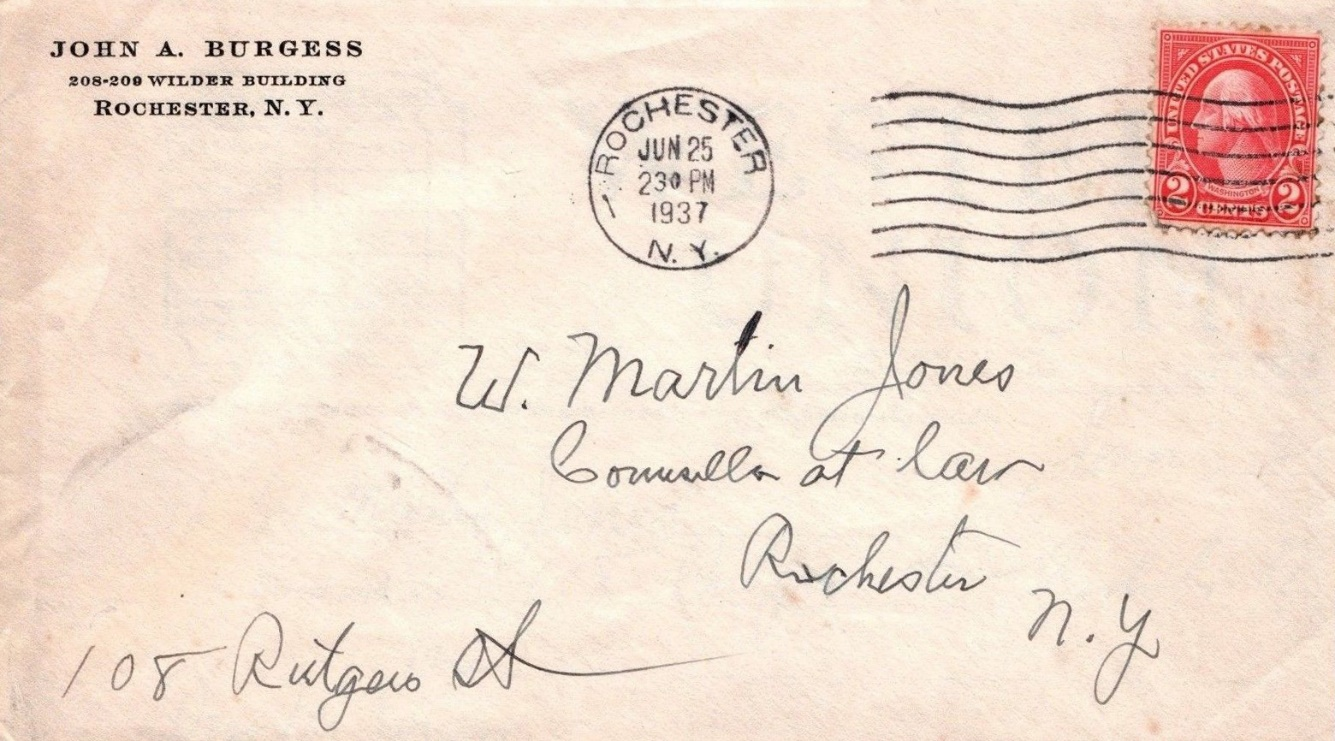 JOHN A. BURGESS
208-209 WILDER BUILDING
ROCHESTER, N. Y.
ROCHESTER
JUN 25
230 PM
1937
N. Y.
UNITED STATES POSTAGE
WASHINGTON
2 CENTS 2
W. Martin Jones
Counsellor at law
Rochester
N. Y
108 Rutgers St